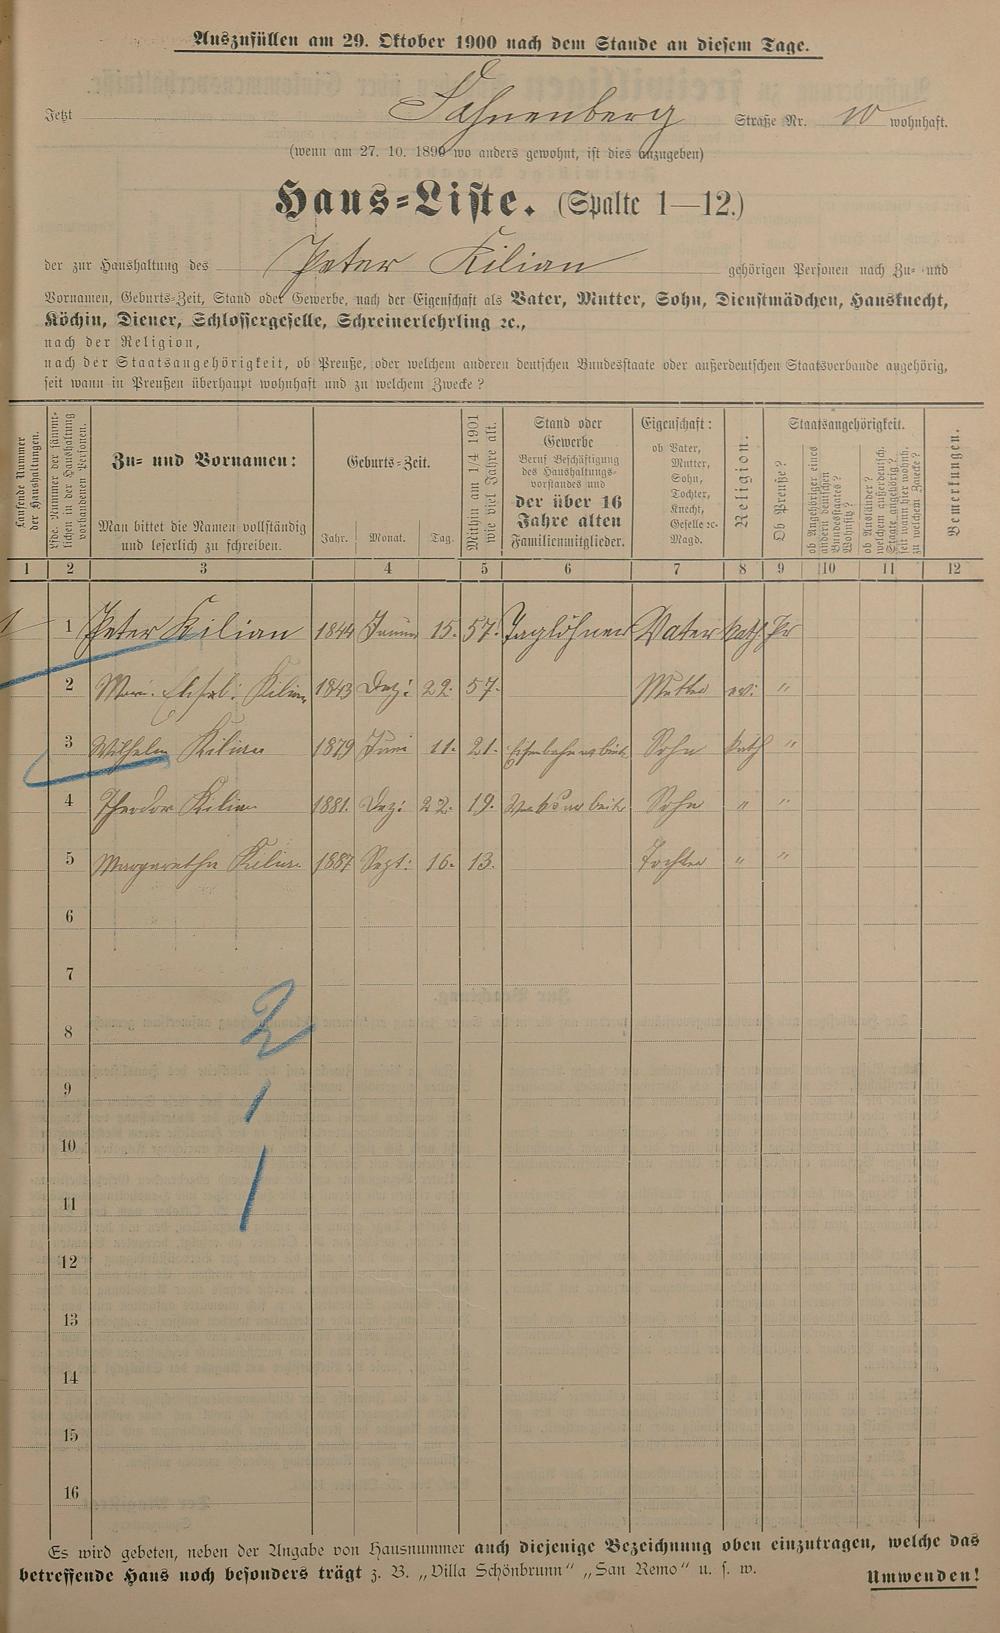 Auszufüllen am 29. Oktober 1900 nach dem Stande an diesem Tage.
Jetzt Straße Nr. 10 wohnhaft.
(wenn am 27. 10. 1890 wo anders gewohnt, ist dies anzugeben)
Haus-Liste. (Spalte 1—12.)
der zur Haushaltung des Peter Kilian gehörigen Personen nach Zu- und
Vornamen, Geburts-Zeit, Stand oder Gewerbe, nach der Eigenschaft als Vater, Mutter, Sohn, Dienstmädchen, Hausknecht,
Köchin, Diener, Schlossergeselle, Schreinerlehrling ꝛc.,
nach der Religion,
nach der Staatsangehörigkeit, ob Preuße, oder welchem anderen deutschen Bundesstaate oder außerdeutschen Staatsverbande angehörig,
seit wann in Preußen überhaupt wohnhaft und zu welchem Zwecke?
Laufende Nummer der Haushaltungen.
Lfde Nummer der sämmtlichen in der Haushaltung vorhandenen Personen.
Zu- und Vornamen:
Man bittet die Namen vollständig
und leserlich zu schreiben.
Geburts-Zeit.
Jahr. Monat. Tag.
Mithin am 1/4 1901 wie viel Jahre alt.
Stand oder
Gewerbe
Beruf Beschäftigung
des Haushaltungs-
vorstandes und
der über 16
Jahre alten
Familienmitglieder.
Eigenschaft:
ob Vater,
Mutter,
Sohn,
Tochter,
Knecht,
Geselle ꝛc.
Magd.
Religion.
Staatsangehörigkeit.
Ob Preuße?
ob Angehöriger eines andern deutschen Bundesstaates? Wohnsitz?
ob Ausländer? welchem außerdeutsch. Staate angehörig? seit wann hier wohnh. zu welchem Zwecke?
Bemerkungen.
1 2 3 4 5 6 7 8 9 10 11 12
1 1 Peter Kilian 1844 15. 57. Taglöhner Vater Kath. Pr
2 Kilian 1843 Dez: 22. 57. Mutter ev: "
3 Wilhelm Kilian 1879 Juni 11. 21. Eisenbahnarbeiter Sohn Kath "
4 Theodor Kilian 1881. Dez: 22. 19. Sohn " "
5 Margaretha Kilian 1887 Sept: 16. 13. Tochter " "
6
7
2
8
9
1
10
1
11
12
13
14
15
16
Es wird gebeten, neben der Angabe von Hausnummer auch diejenige Bezeichnung oben einzutragen, welche das
betreffende Haus noch besonders trägt z. B. „Villa Schönbrunn" „San Remo" u. s. w. Umwenden!